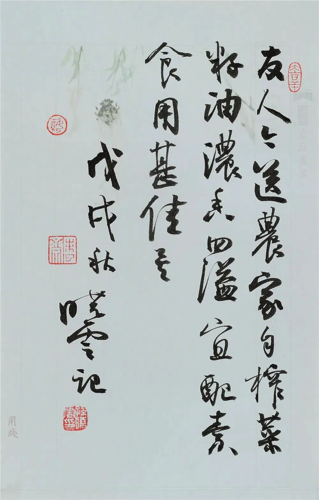 友人今送農家自榨菜
籽油濃香四溢宜配素
食用甚佳
戊戌秋
曉雲記